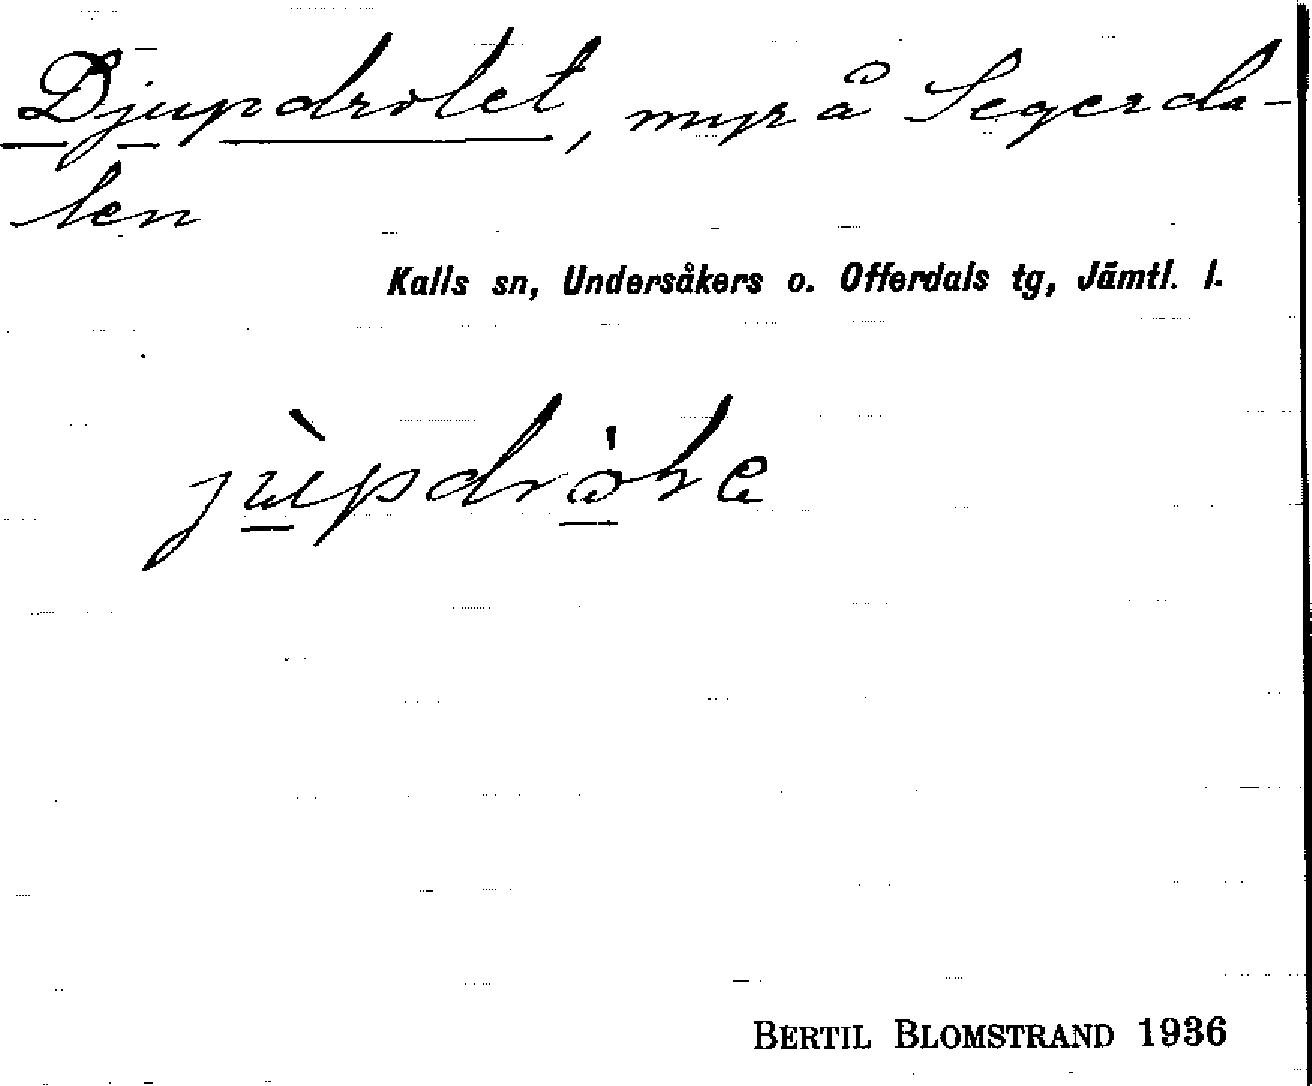 Djupdrolet, myr å Segerda-
len
Kalls sn, Undersåkers o. Offerdals tg, Jämtl. l.
BERTIL BLOMSTRAND 1936